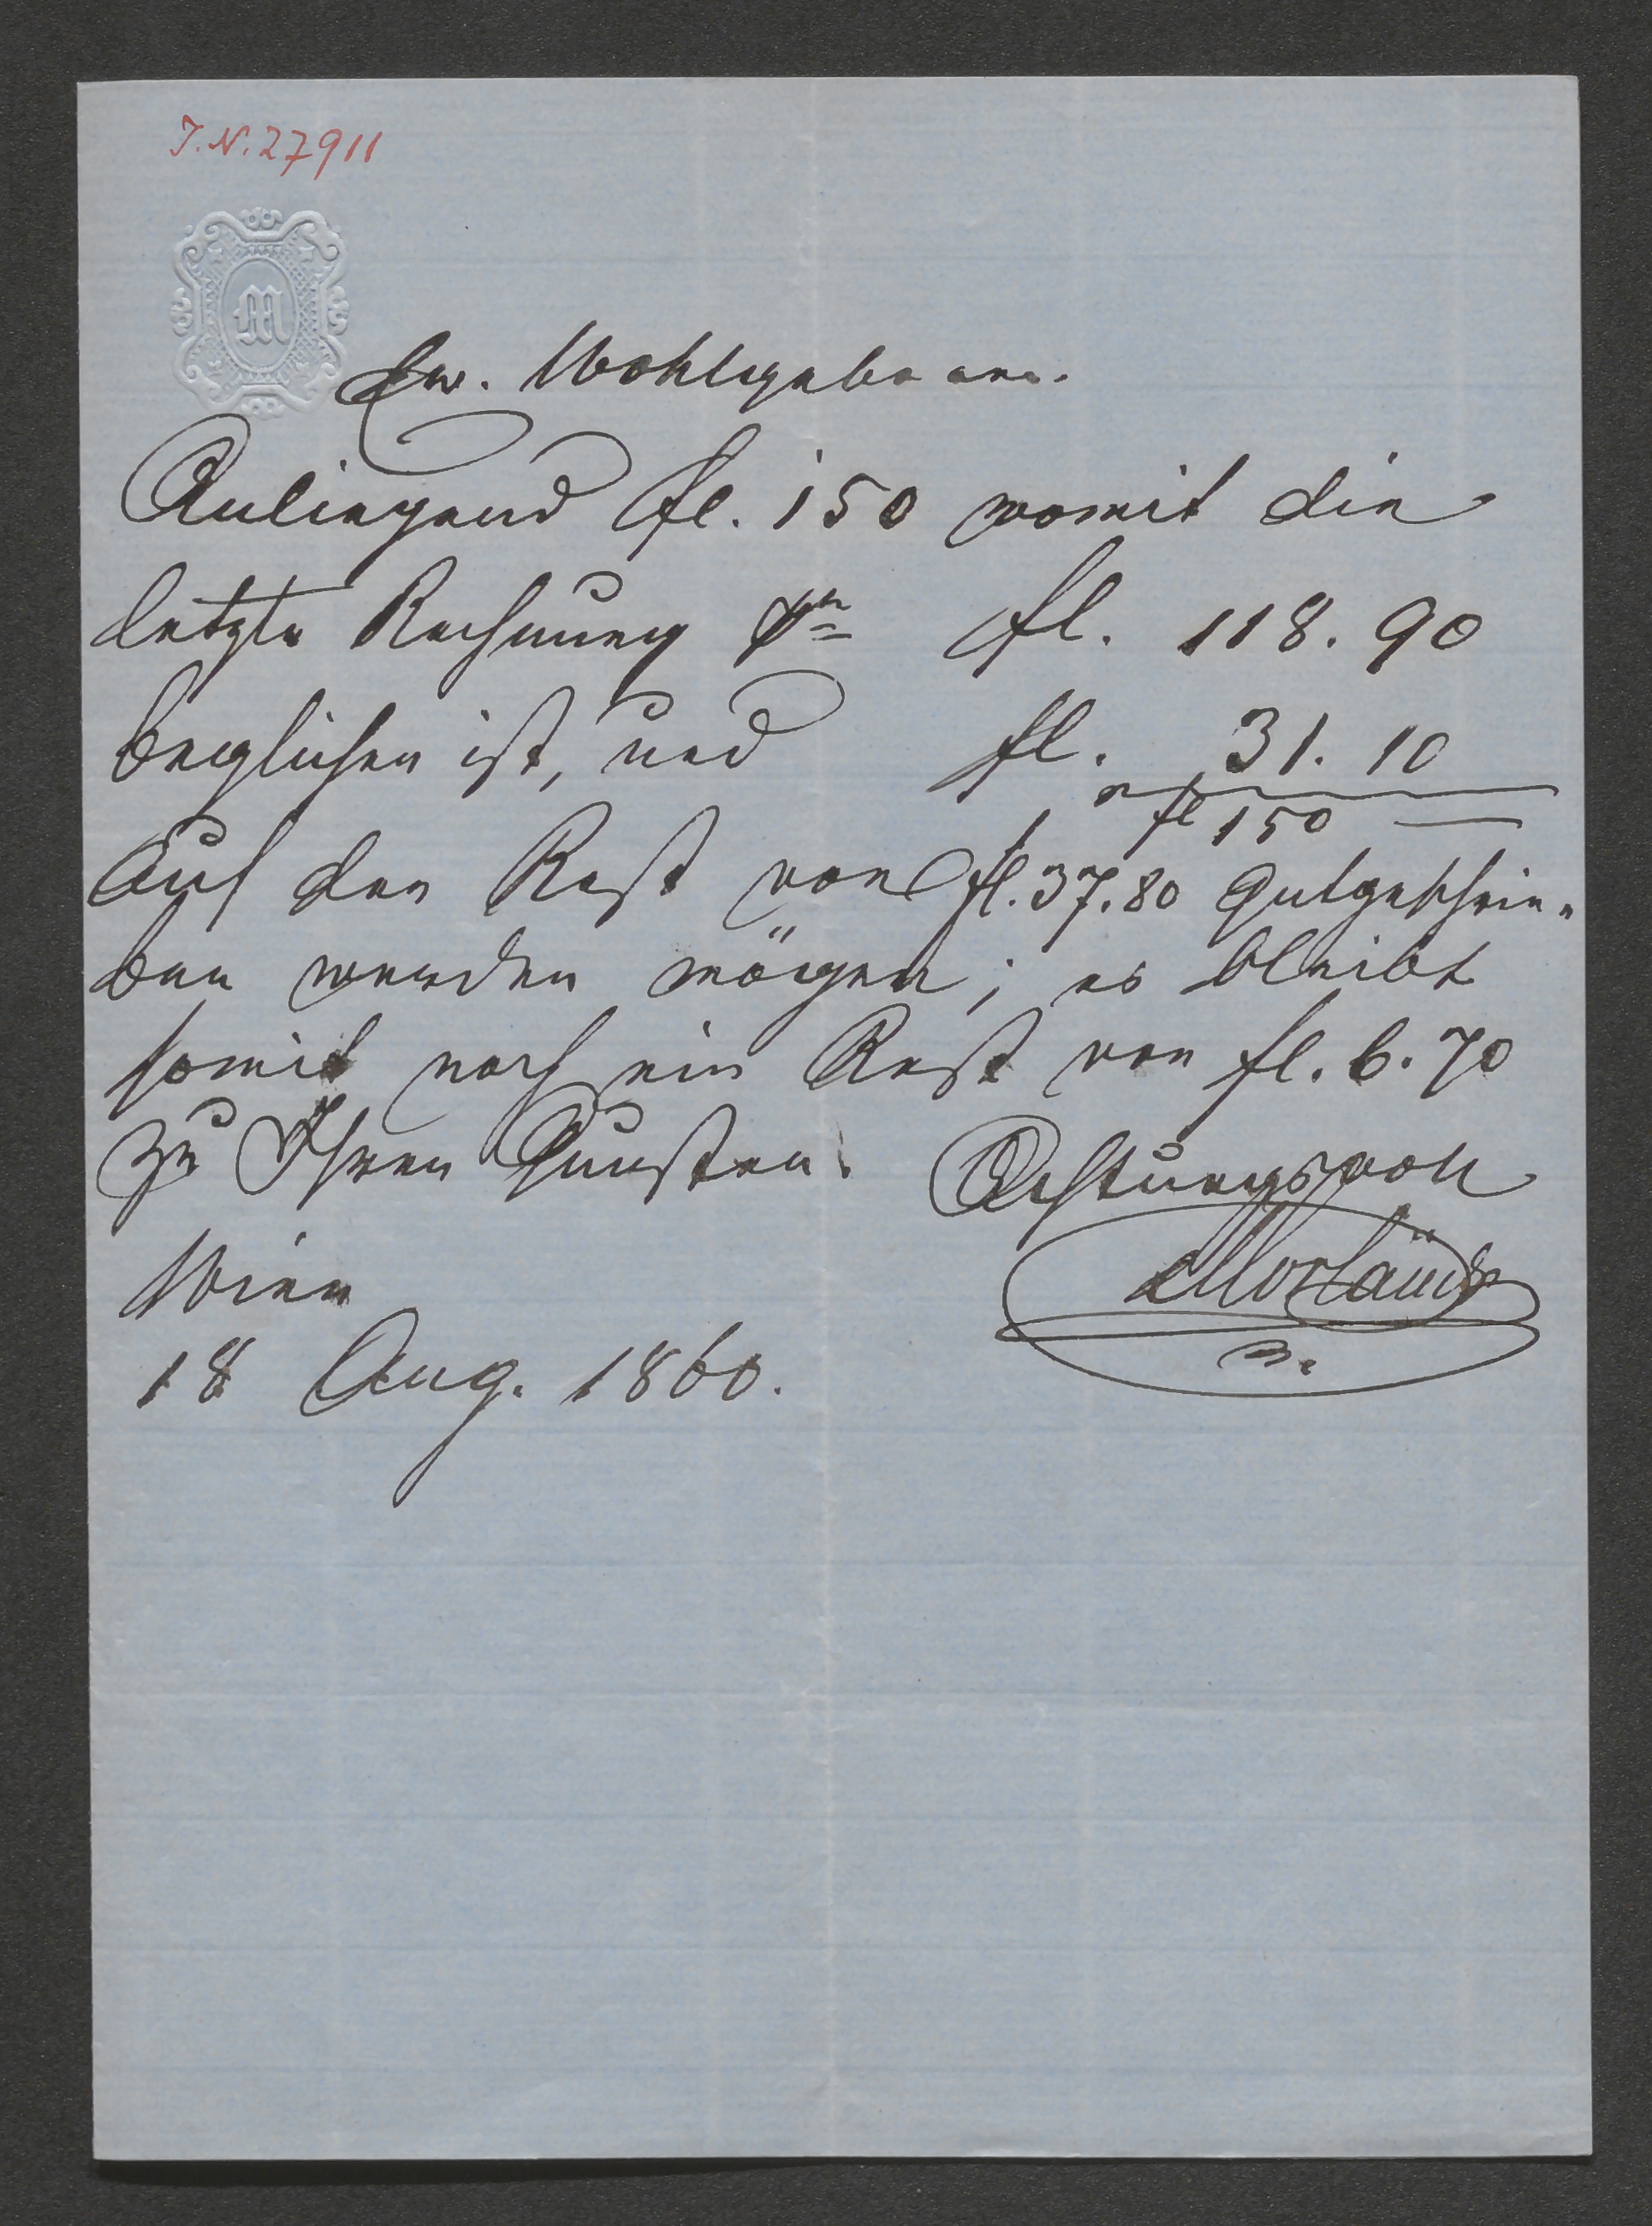 I.N. 27911
M
Ew. Wohlgeboren.
Anliegend fl. 150 womit die
letzte Rechnung pr fl. 118. 90
beglichen ist, und fl. 31. 10
fl 150 —
auf den Rest von fl. 37. 80 gutgeschrie-
ben werden mögen; es bleibt
somit noch ein Rest von fl. 6. 70
zu Ihren Gunsten. Achtungsvoll
Wien
18 Aug. 1860.